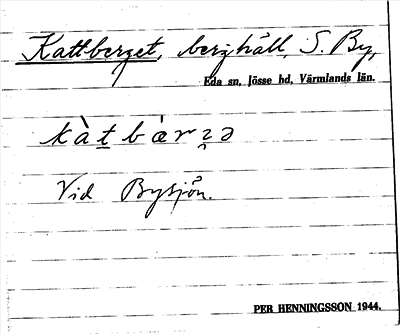 Kattberget, berghäll, S. By,
Eda sn, Jösse hd, Värmlands län.
kàt̲bær
Vid Bysjön.
PER HENNINGSSON 1944.